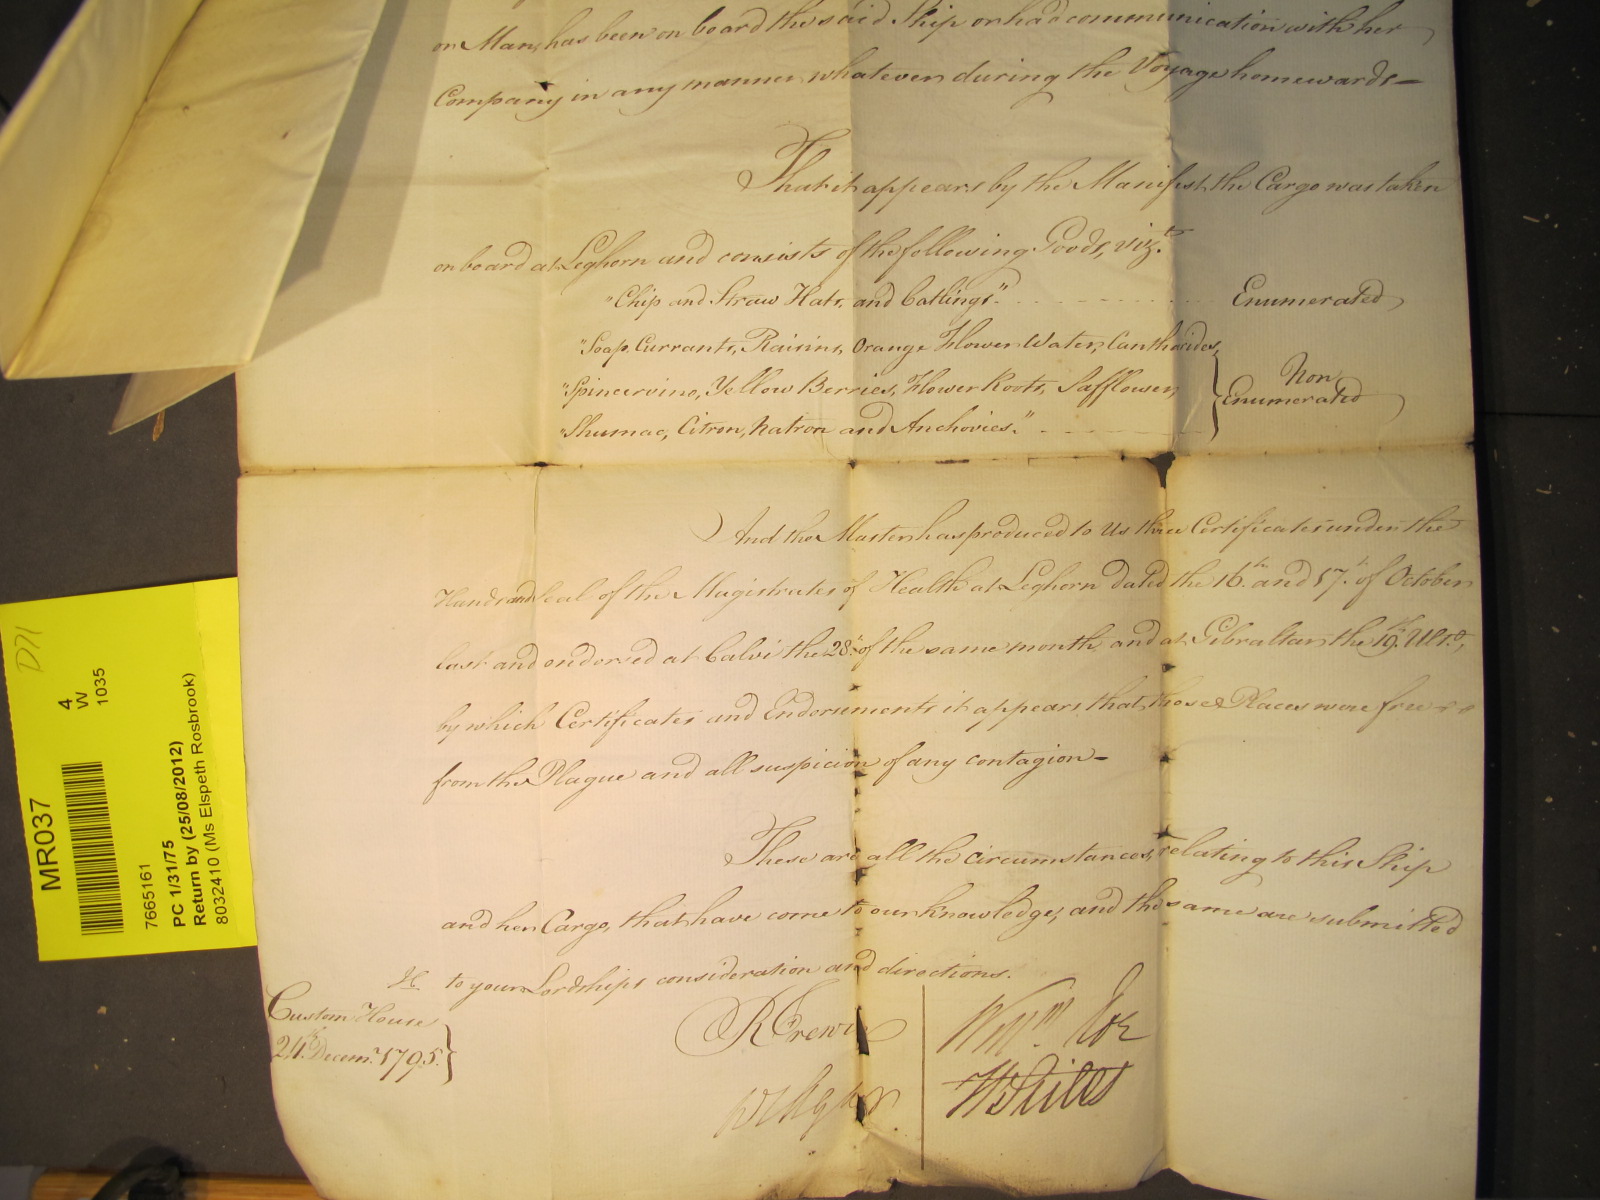 or Man, has been on board the said Ship or had communication with her
Company in any manner whatever during the Voyage homewards—
That it appears by the Manifest the Cargo was taken
on board at Leghorn and consists of the following Goods, viz.t
"Chip and Straw Hats, and Catlings". Enumerated
"Soap, Currants, Raisins, Orange Flower Water, Cantharides,
"Spincervino, Yellow Berries, Flower Roots, Safflower, Non
"Shumac, Citron, Natron and Anchovies." Enumerated
And the Master has produced to Us three Certificates under the
Hands and Seal of the Magistrates of Health at Leghorn dated the 16.th and 17.th of October
last and endorsed at Calvi the 28.th of the same month, and at Gibraltar the 19.th Ult.o,
by which Certificates and Endorsements it appears that those Places were free
from the Plague and all suspicion of any contagion—
These are all the circumstances, relating to this Ship
and her Cargo, that have come to our knowledge, and the same are submitted
to your Lordships consideration and directions.
Custom House
24.th Decem.r 1795.
R Frewin
Wm. Roe
W Stiles
D71
4
W
1035
MR037
7665161
PC 1/31/75
Return by (25/08/2012)
8032410 (Ms Elspeth Rosbrook)